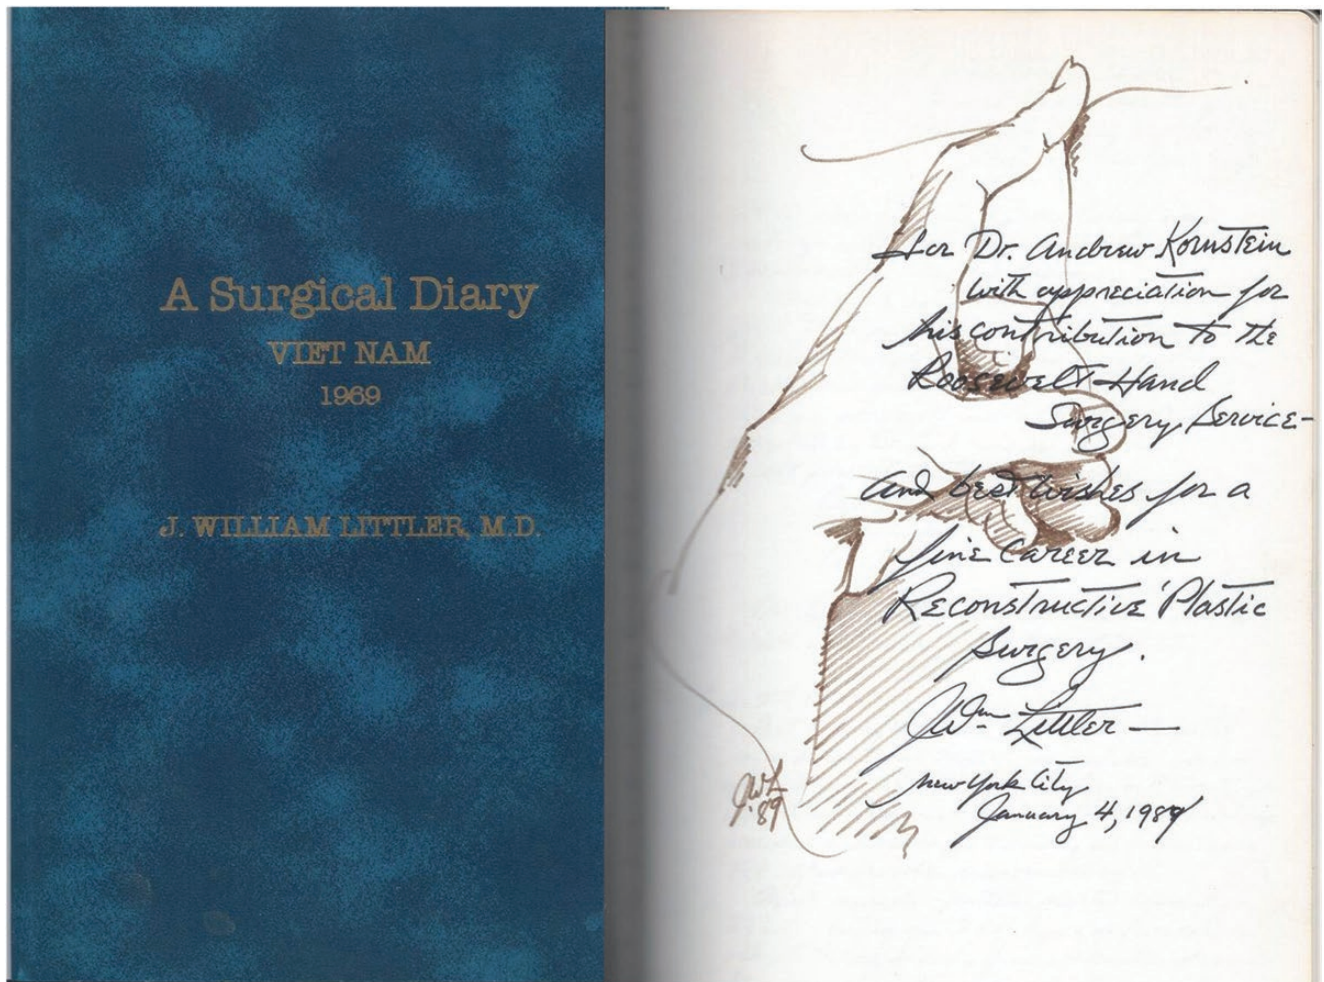 A Surgical Diary
VIET NAM
1969
J. WILLIAM LITTLER, M.D.
for Dr. Andrew Kornstein
with appreciation for
his contribution to the
Roosevelt Hand
Surgery Service-
And best wishes for a
fine Career in
Reconstructive Plastic
Surgery.
JWm Littler —
New York City
January 4, 1989
JWL
'89